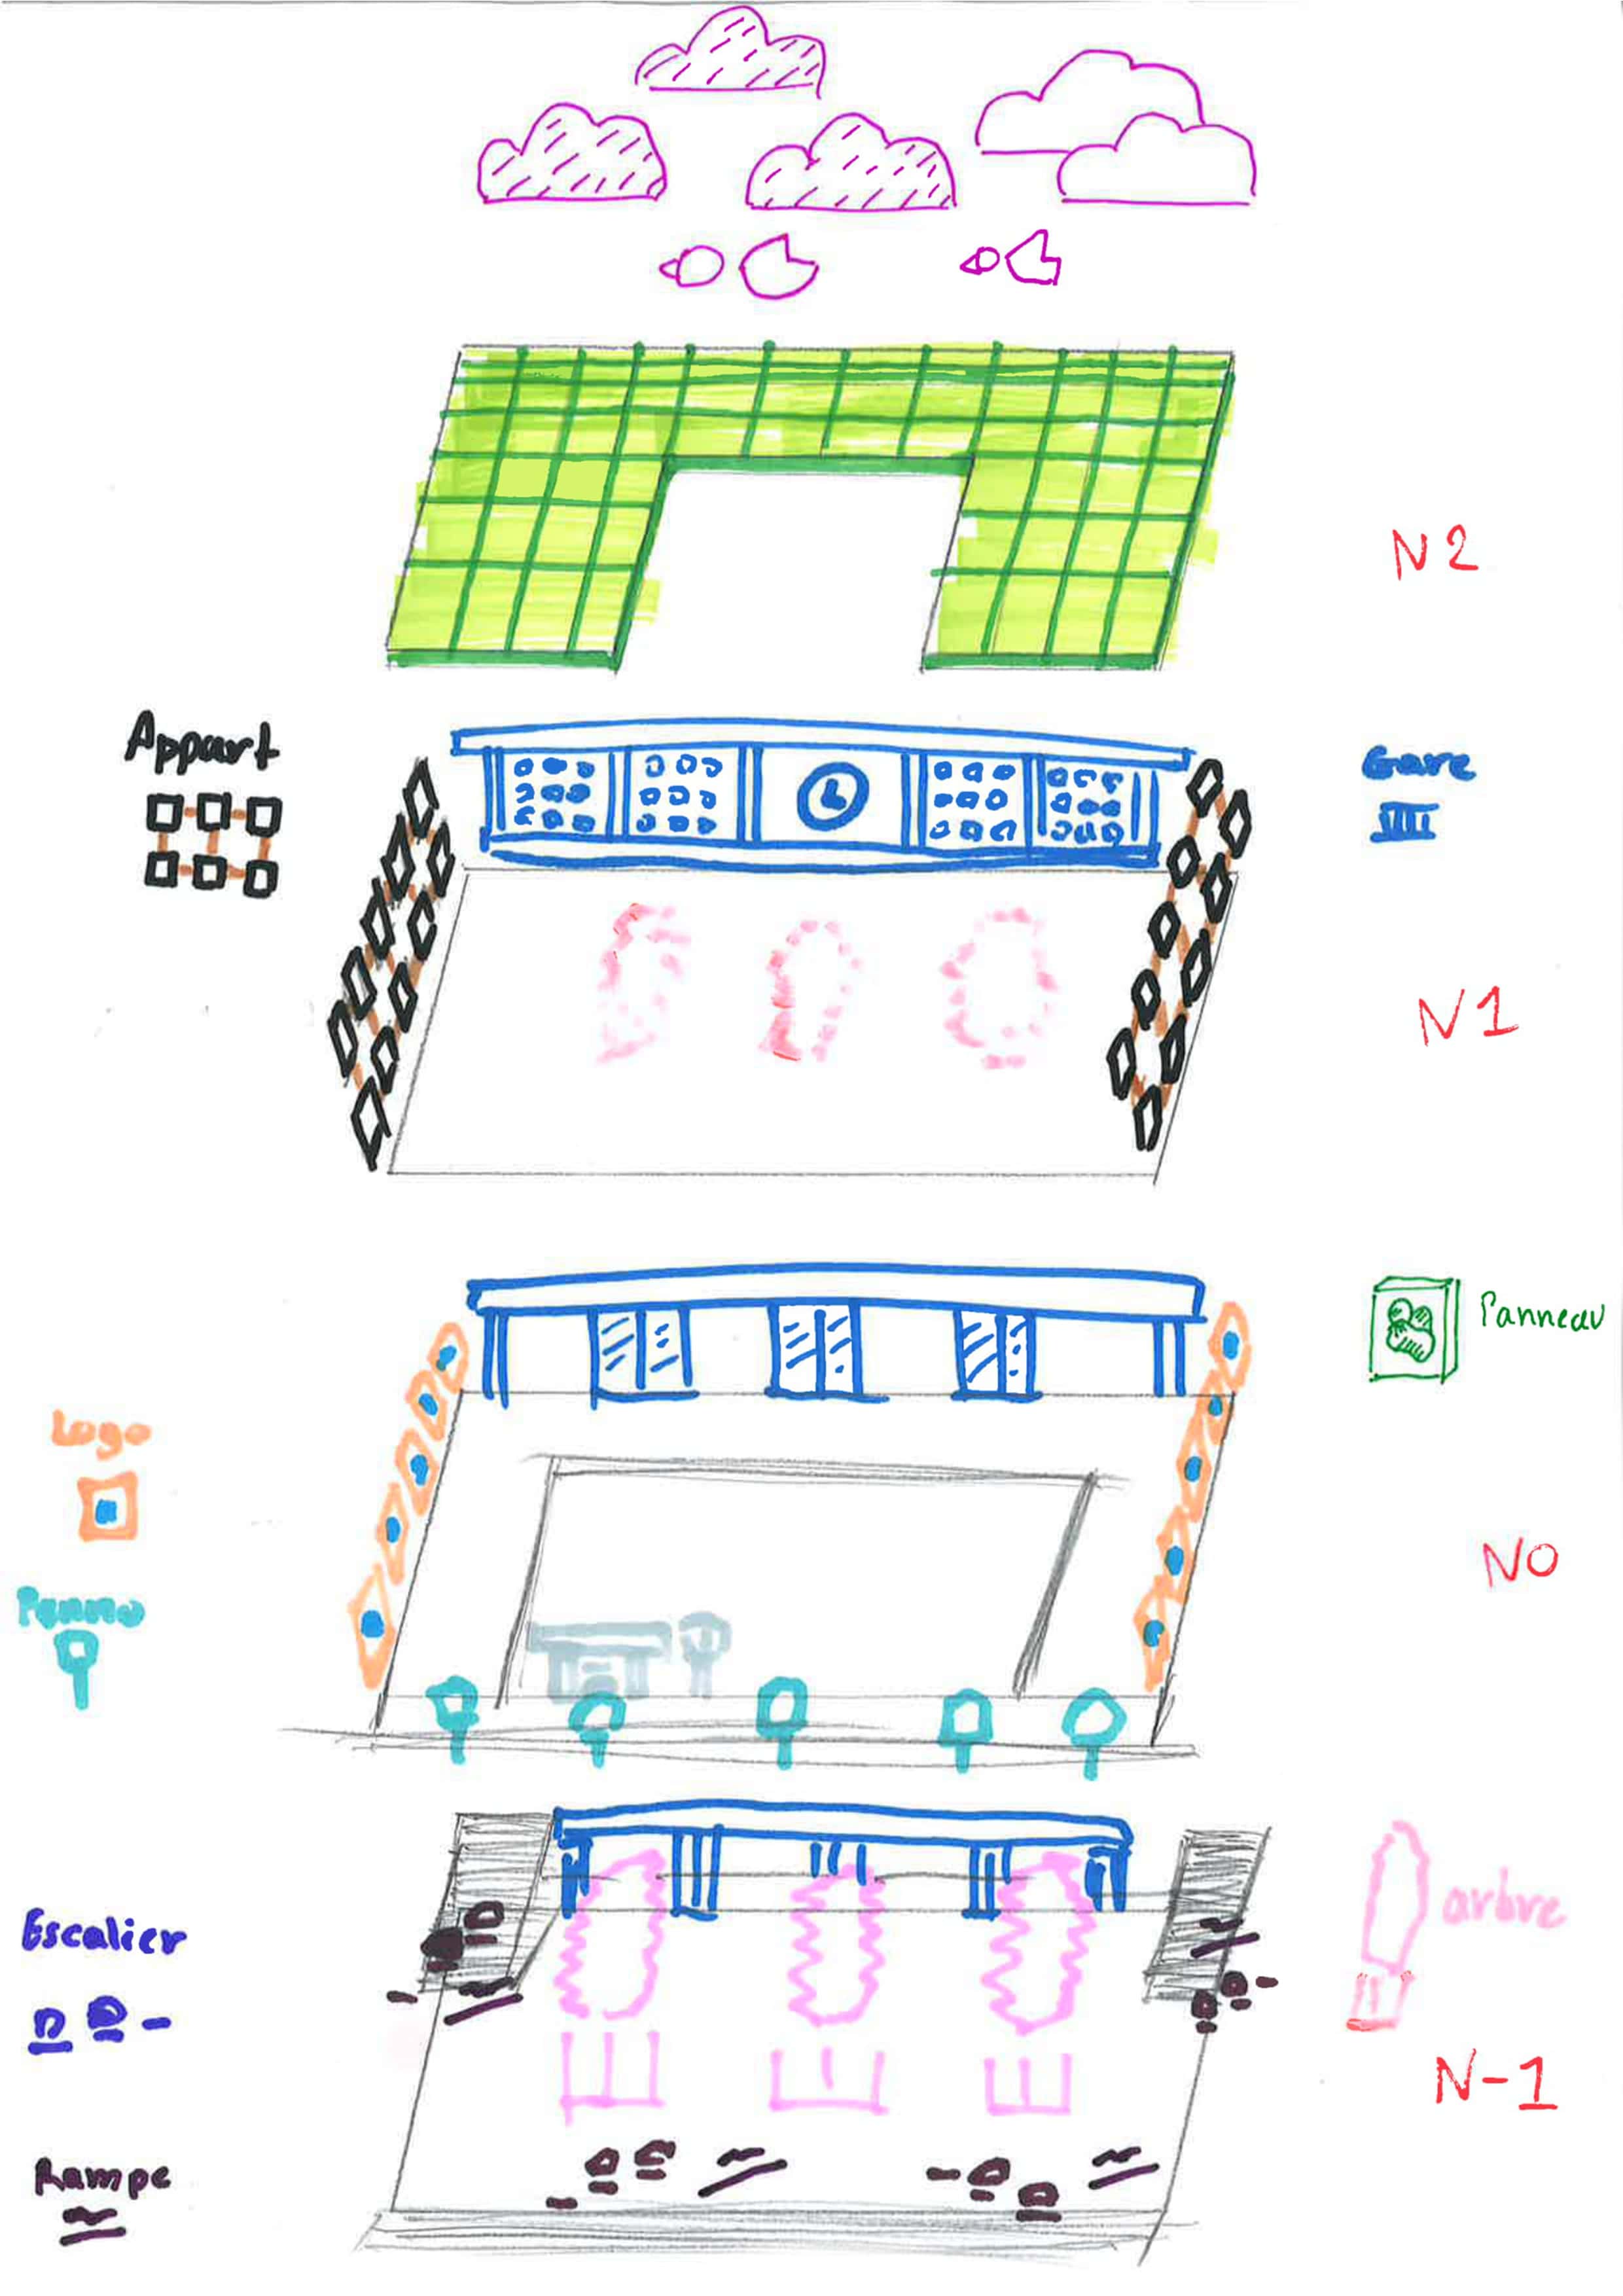 N2
Appart
Gare
N1
Panneau
Logo
N0
Panno
Escalier
arbre
N-1
Rampe